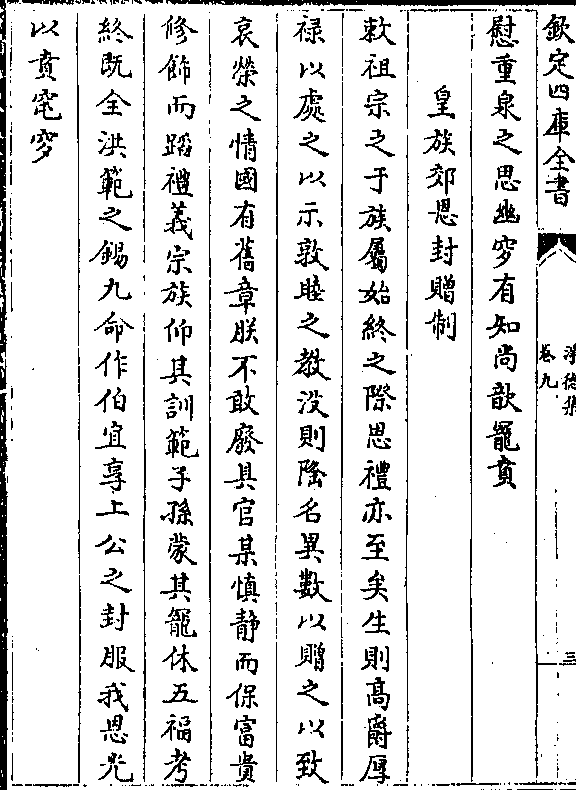 欽定四庫全書
淨德集
卷九
三
慰重泉之思幽穸有知尚歆寵賁
皇族郊恩封贈制
敕祖宗之于族屬始終之際恩禮亦至矣生則高爵厚
禄以處之以示敦睦之教没則隆名異數以贈之以致
哀榮之情國有舊章朕不敢廢具官某慎静而保富貴
修飾而蹈禮義宗族仰其訓範子孫蒙其寵休五福考
終既全洪範之錫九命作伯宜享上公之封服我恩光
以賁窀穸